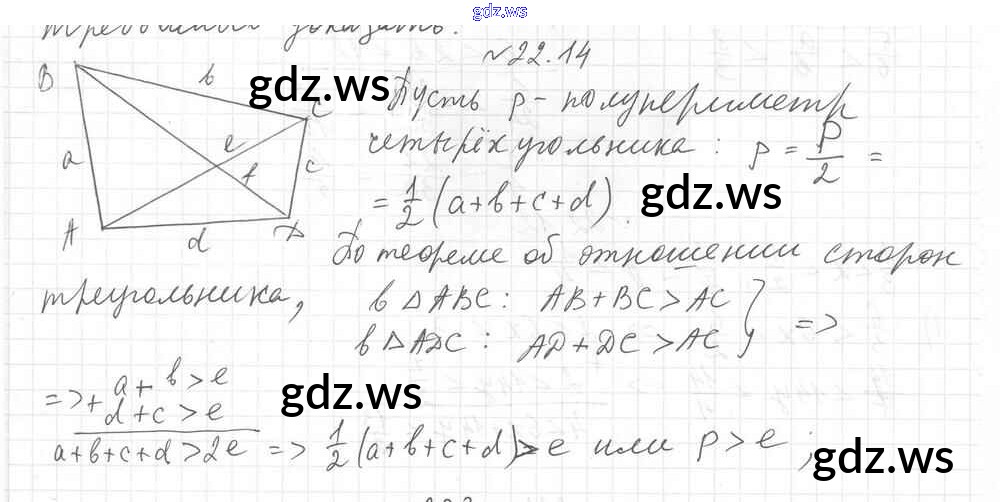 gdz.ws
требовалось доказать.
№22.14
B b C a e f c A d D
Пусть p - полупериметр
четырёхугольника: p = P/2 =
= 1/2 (a+b+c+d).
По теореме об отношении сторон
треугольника, в △ABC: AB+BC>AC
в △ADC: AD+DC>AC } =>
=> + a+b>e
d+c>e
a+b+c+d>2e => 1/2 (a+b+c+d)>e или p>e;
gdz.ws
gdz.ws
gdz.ws
gdz.ws